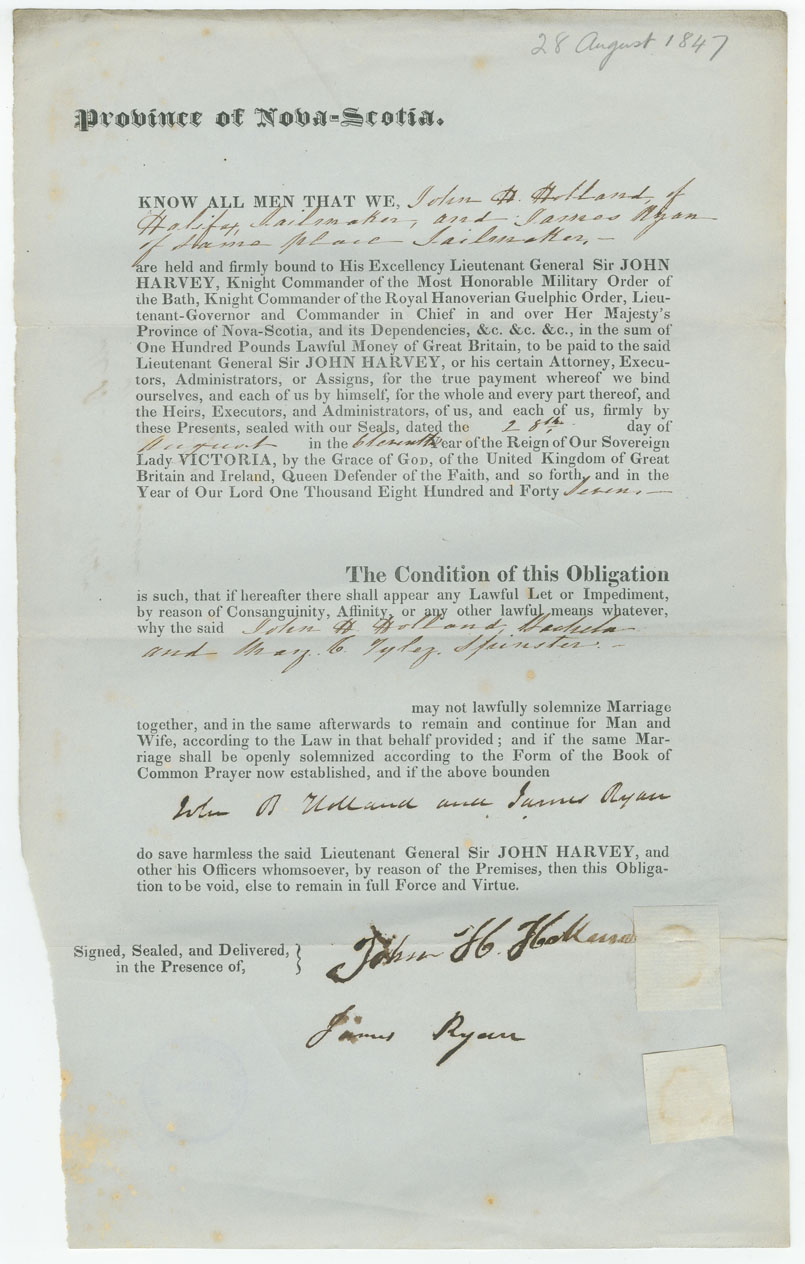 28 August 1847
Province of Nova-Scotia.
KNOW ALL MEN THAT WE, John H. Holland, of
Halifax, Sailmaker, and James Ryan
of same place Sailmaker, —
are held and firmly bound to His Excellency Lieutenant General Sir JOHN
HARVEY, Knight Commander of the Most Honorable Military Order of
the Bath, Knight Commander of the Royal Hanoverian Guelphic Order, Lieu-
tenant-Governor and Commander in Chief in and over Her Majesty's
Province of Nova-Scotia, and its Dependencies, &c. &c. &c., in the sum of
One Hundred Pounds Lawful Money of Great Britain, to be paid to the said
Lieutenant General Sir JOHN HARVEY, or his certain Attorney, Execu-
tors, Administrators, or Assigns, for the true payment whereof we bind
ourselves, and each of us by himself, for the whole and every part thereof, and
the Heirs, Executors, and Administrators, of us, and each of us, firmly by
these Presents, sealed with our Seals, dated the 28th day of
August in the Eleventh Year of the Reign of Our Sovereign
Lady VICTORIA, by the Grace of GOD, of the United Kingdom of Great
Britain and Ireland, Queen Defender of the Faith, and so forth, and in the
Year of Our Lord One Thousand Eight Hundred and Forty Seven. —
The Condition of this Obligation
is such, that if hereafter there shall appear any Lawful Let or Impediment,
by reason of Consanguinity, Affinity, or any other lawful means whatever,
why the said John H Holland, Bachelor
and Mary C. Spinster. —
may not lawfully solemnize Marriage
together, and in the same afterwards to remain and continue for Man and
Wife, according to the Law in that behalf provided; and if the same Mar-
riage shall be openly solemnized according to the Form of the Book of
Common Prayer now established, and if the above bounden
John B Holland and James Ryan
do save harmless the said Lieutenant General Sir JOHN HARVEY, and
other his Officers whomsoever, by reason of the Premises, then this Obliga-
tion to be void, else to remain in full Force and Virtue.
Signed, Sealed, and Delivered,
in the Presence of,
John H. Holland
James Ryan